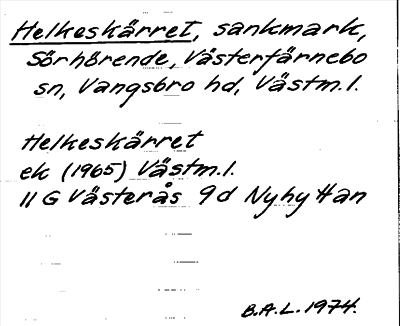 Helkeskärret, sankmark,
Sörhörende, Västerfärnebo
sn, Vangsbro hd, Västm.l.
Helkeskärret
ek (1965) Västm.l.
11 G Västerås 9d Nyhyttan
B.A.L. 1974.